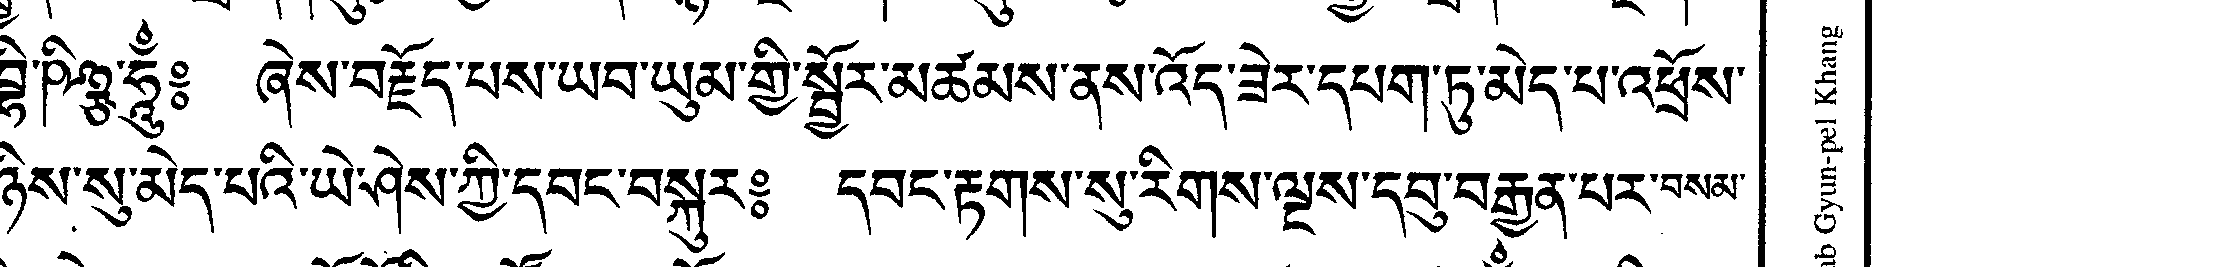 ཧཱུྃ༔ ཞེས་བརྗོད་པས་ཡབ་ཡུམ་གྱི་སྦྱོར་མཚམས་ནས་འོད་ཟེར་དཔག་ཏུ་མེད་པ་འཕྲོས་
ཉིས་སུ་མེད་པའི་ཡེ་ཤེས་ཀྱི་དབང་བསྐུར༔ དབང་རྟགས་སུ་རིགས་ལྔས་དབུ་བརྒྱན་པར་བསམ་
Gyun-pel Khang